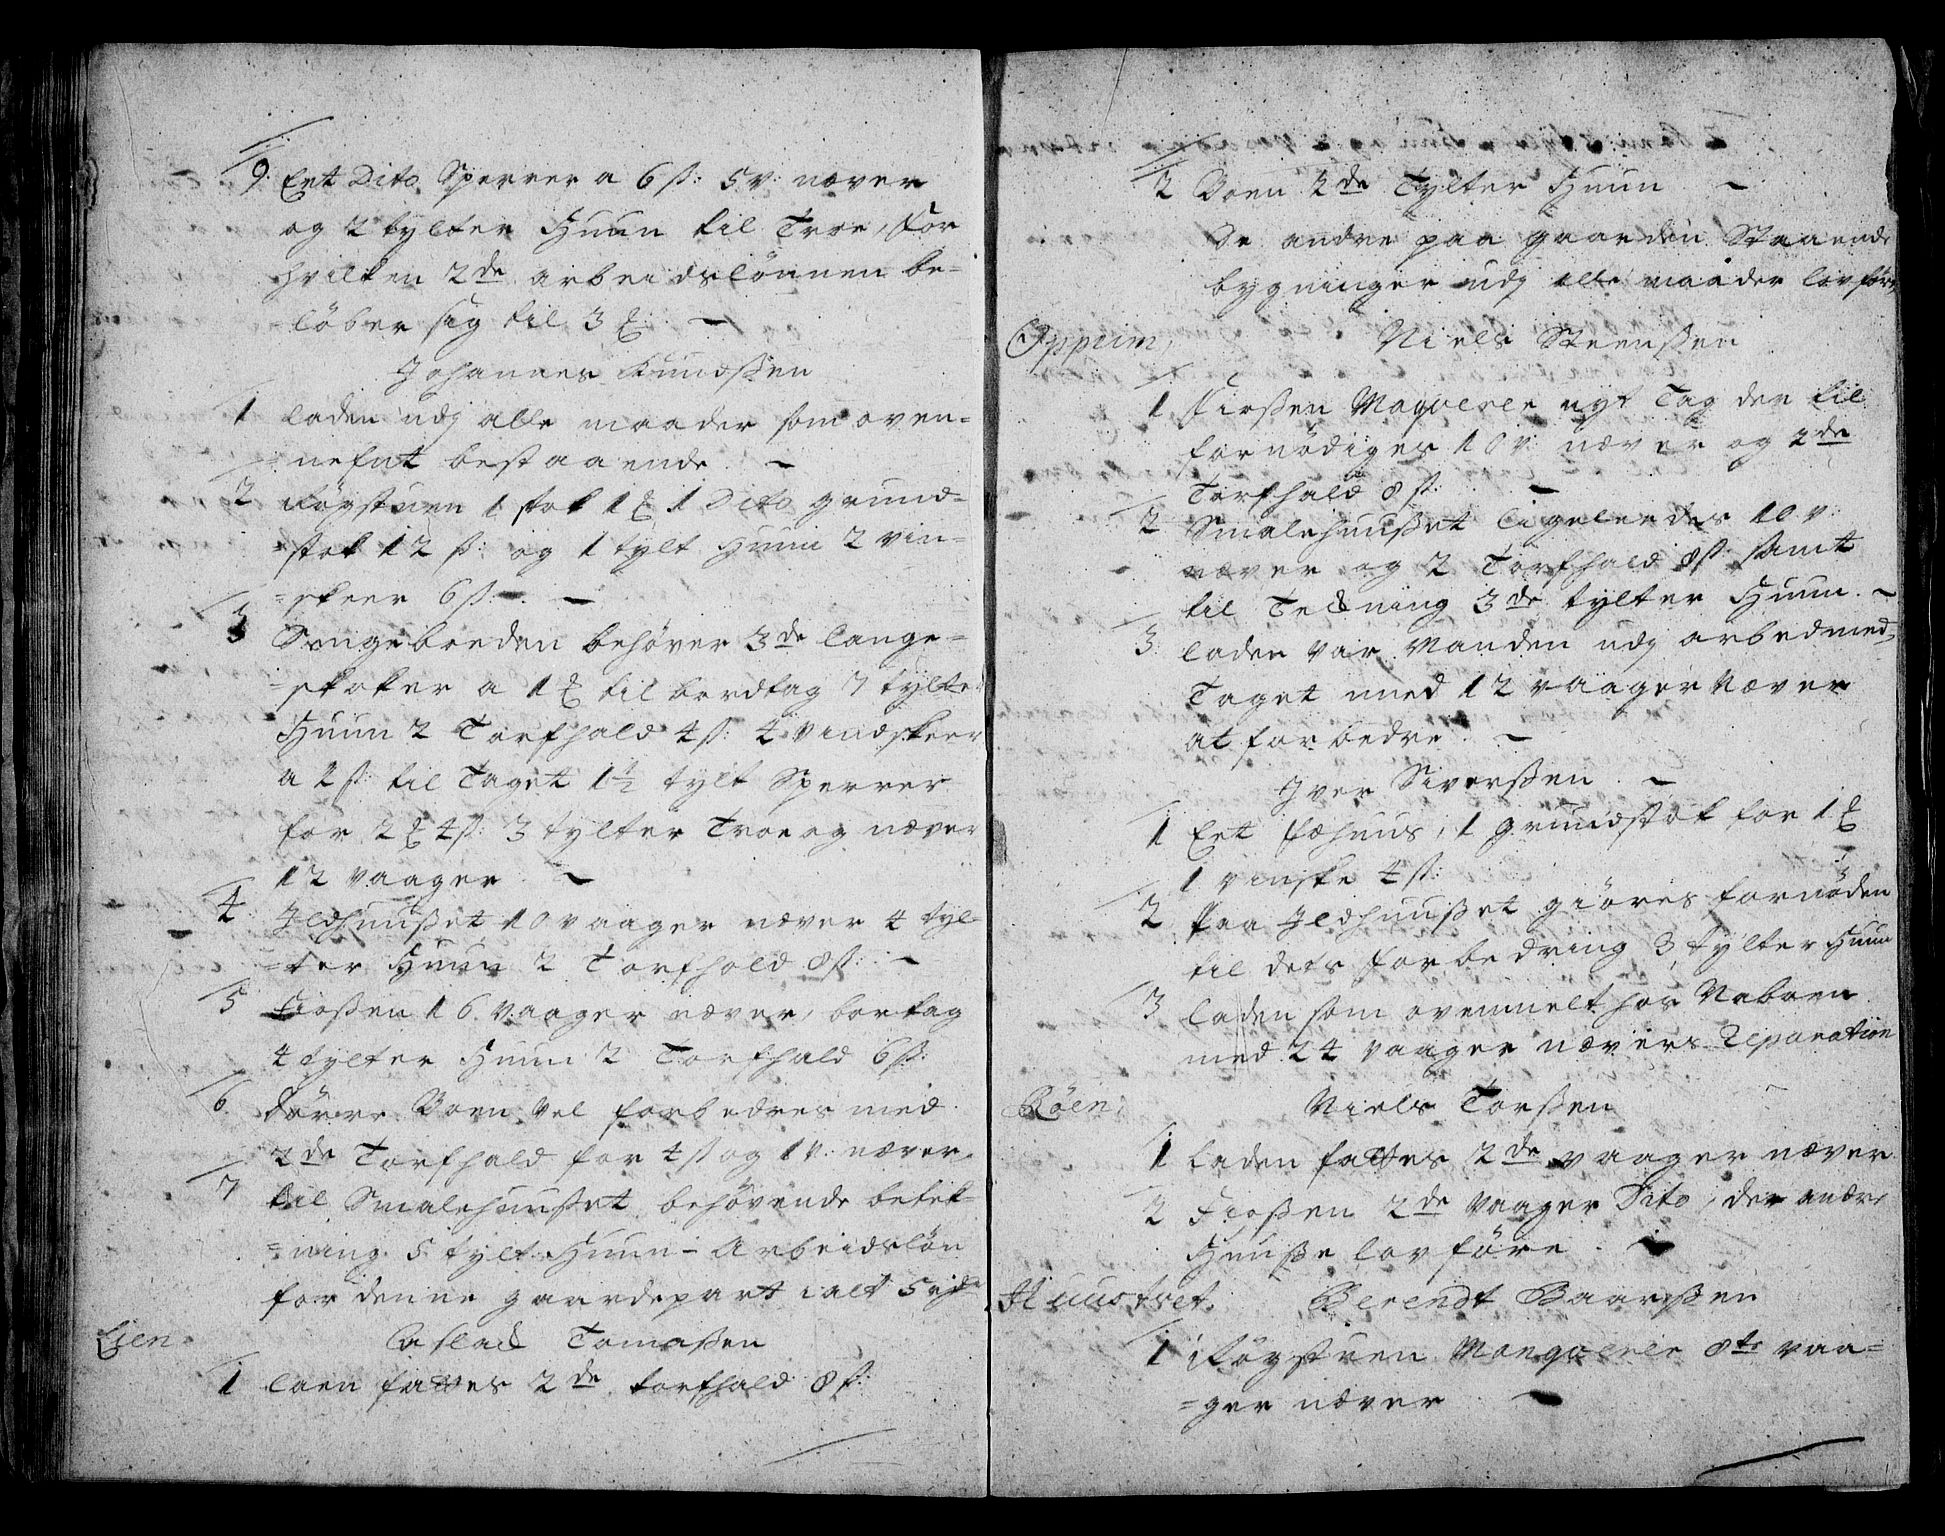 9. Ent Dito Sperrer a 6 ß: 5 v: næver
og 2 tylter Huun til Troe, for
hvilken 2de arbeidslønnen be-
løber sig til 3 
Johannes Knudssen
1 Laden udj alle maader som oven-
nefnt bestaaende
2 Røgstuen 1 stok 1 1 Dito grund-
stok 12 ß: og 1 tylt Huun 2 vin-
=skeer 6 ß:
3 Sengeboeden behøver 3de lange-
=stoker a 1 til bordtag 7 tylter
Huun 2 Torfhald 4 ß: 4 vindskeer
a 2 ß: til Taget 1½ tylt Sperrer
for 2 4 ß: 3 tylter Troe og næver
12 vaager
4 Jldhuusset 10 vaager næver 4 tyl-
=ter Huun 2 Torfhold 8 ß:
5 Fiossen 16 vaager næver, bortag
4 tylter Huun 2 Torfhald 6 ß:
6 dörre Boen vel forbedres med
2de Torfhald for 4 ß og 1 v: næver
7 til Smalehuusset behøvende betek-
=ning 5 tylt Huun - Arbeidsløn
for denne gaardepart ialt 5 rd
Lien Aslack Tomassen
1 Laen fattes 2de torfhald 8 ß:
2 Boen 2de Tylter Huun
De andre paa gaarden Staaende
bygninger udj alle maader lovføre
Oppiim, Niels Steenssen
1 Fiossen Maqverer nyt Tag der til
fornødiges 10 v: næver og 2de
Torfhald 8 ß:
2 Smalehuusset ligeleedes 10 v:
næver og 2 Torfhald 8 ß: samt
til Tekning 3de tylter Huun
3 Laden var Manden udj arbed med
Taget med 12 vaager Næver
at forbedre
Jver Siverssen
1 Ent fæhuus, 1 grundstok for 1
1 vinske 4 ß:
2 Paa Jldhuusset giøres fornøden
til dets forbedring 3 tylter Huun
3 Laden som ovenmelt hos Naboen
med 24 vaager nævers Reparation
Röen, Niels Torssen
1 Laden fattes 2de vaager næver
2 Fiossen 2de vaager Dito, der andre
Huusse lovføre
Huustvet. Berendt Baarssen
1 i Røgstuen Manqverer 8te vaa=
=ger næver